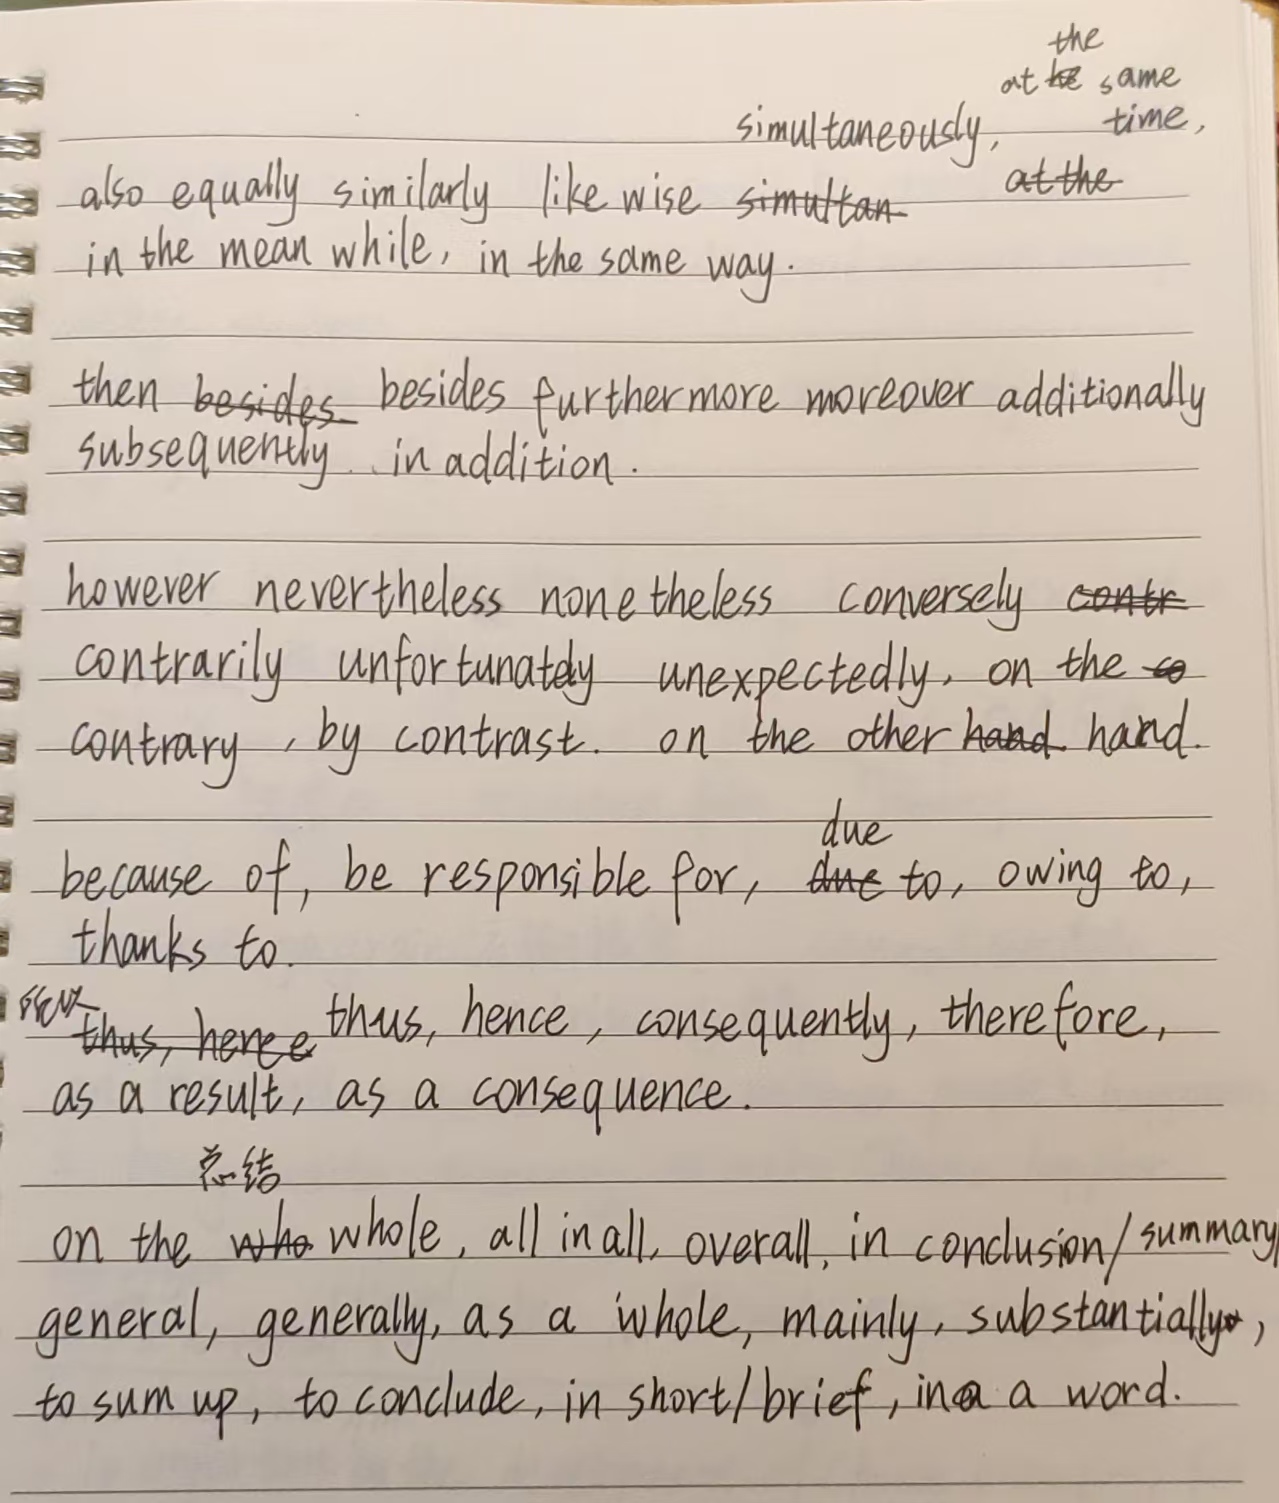 the
at the same
simultaneously, time,
also equally similarly like wise simultan at the
in the mean while, in the same way.
then besides besides furthermore moreover additionally
subsequently in addition.
however nevertheless nonetheless conversely contr
contrarily unfortunately unexpectedly, on the co
contrary, by contrast. on the other hand hand.
due
because of, be responsible for, due to, owing to,
thanks to.
所以
thus, hence thus, hence, consequently, therefore,
as a result, as a consequence.
总结
on the who whole, all in all, overall, in conclusion/summary
general, generally, as a whole, mainly, substantially,
to sum up, to conclude, in short/brief, in a word.